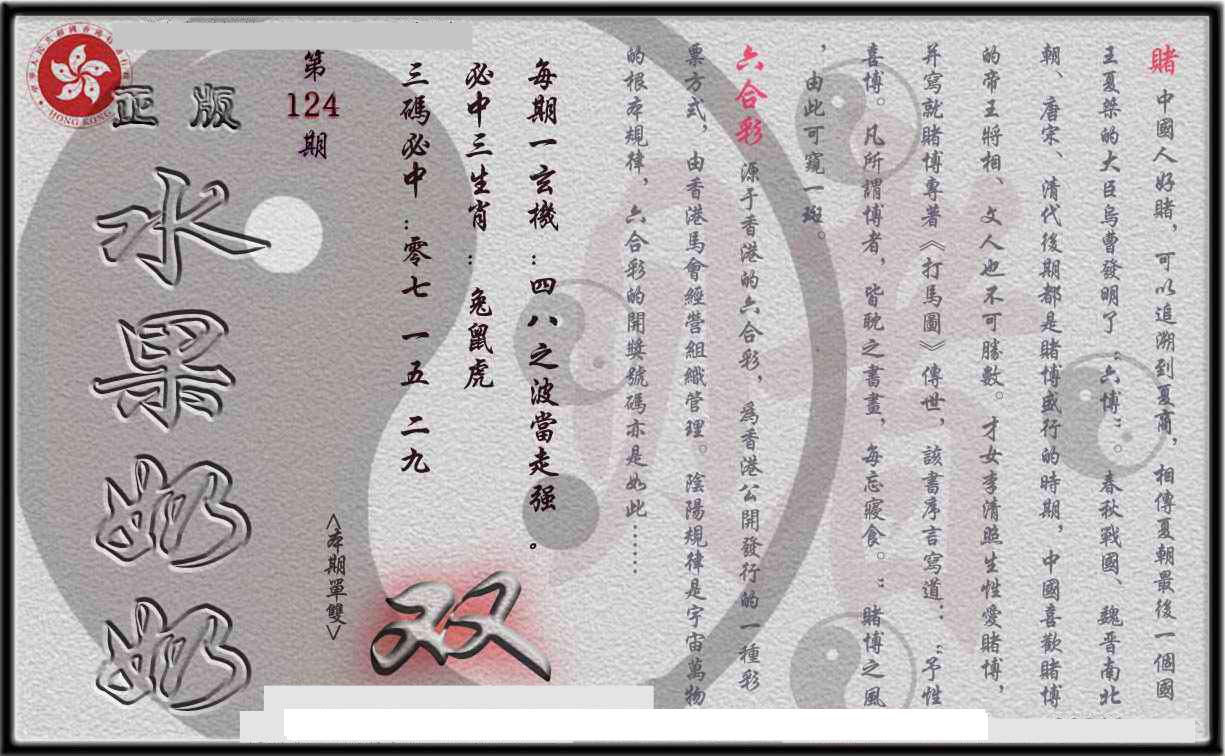 賭 中國人好賭，可以追溯到夏商，相傳夏朝最後一個國
王夏桀的大臣烏曹發明了“六博”。春秋戰國、魏晋南北
朝、唐宋、清代後期都是賭博盛行的時期，中國喜歡賭博
的帝王將相、文人也不可勝數。才女李清照生性愛賭博，
并寫就賭博專著《打馬圖》傳世，該書序言寫道：“予性
喜博。凡所謂博者，皆耽之書畫，每忘寢食。”賭博之風
，由此可窺一斑。
六合彩 源于香港的六合彩，爲香港公開發行的一種彩
票方式，由香港馬會經營組織管理。陰陽規律是宇宙萬物
的根本規律，六合彩的開獎號碼亦是如此……
每期一玄機：四八之波當走强。
必中三生肖：兔鼠虎
三碼必中：零七 一五 二九
<本期單雙>
双
第
124
期
正版
水果奶奶
HONG KONG